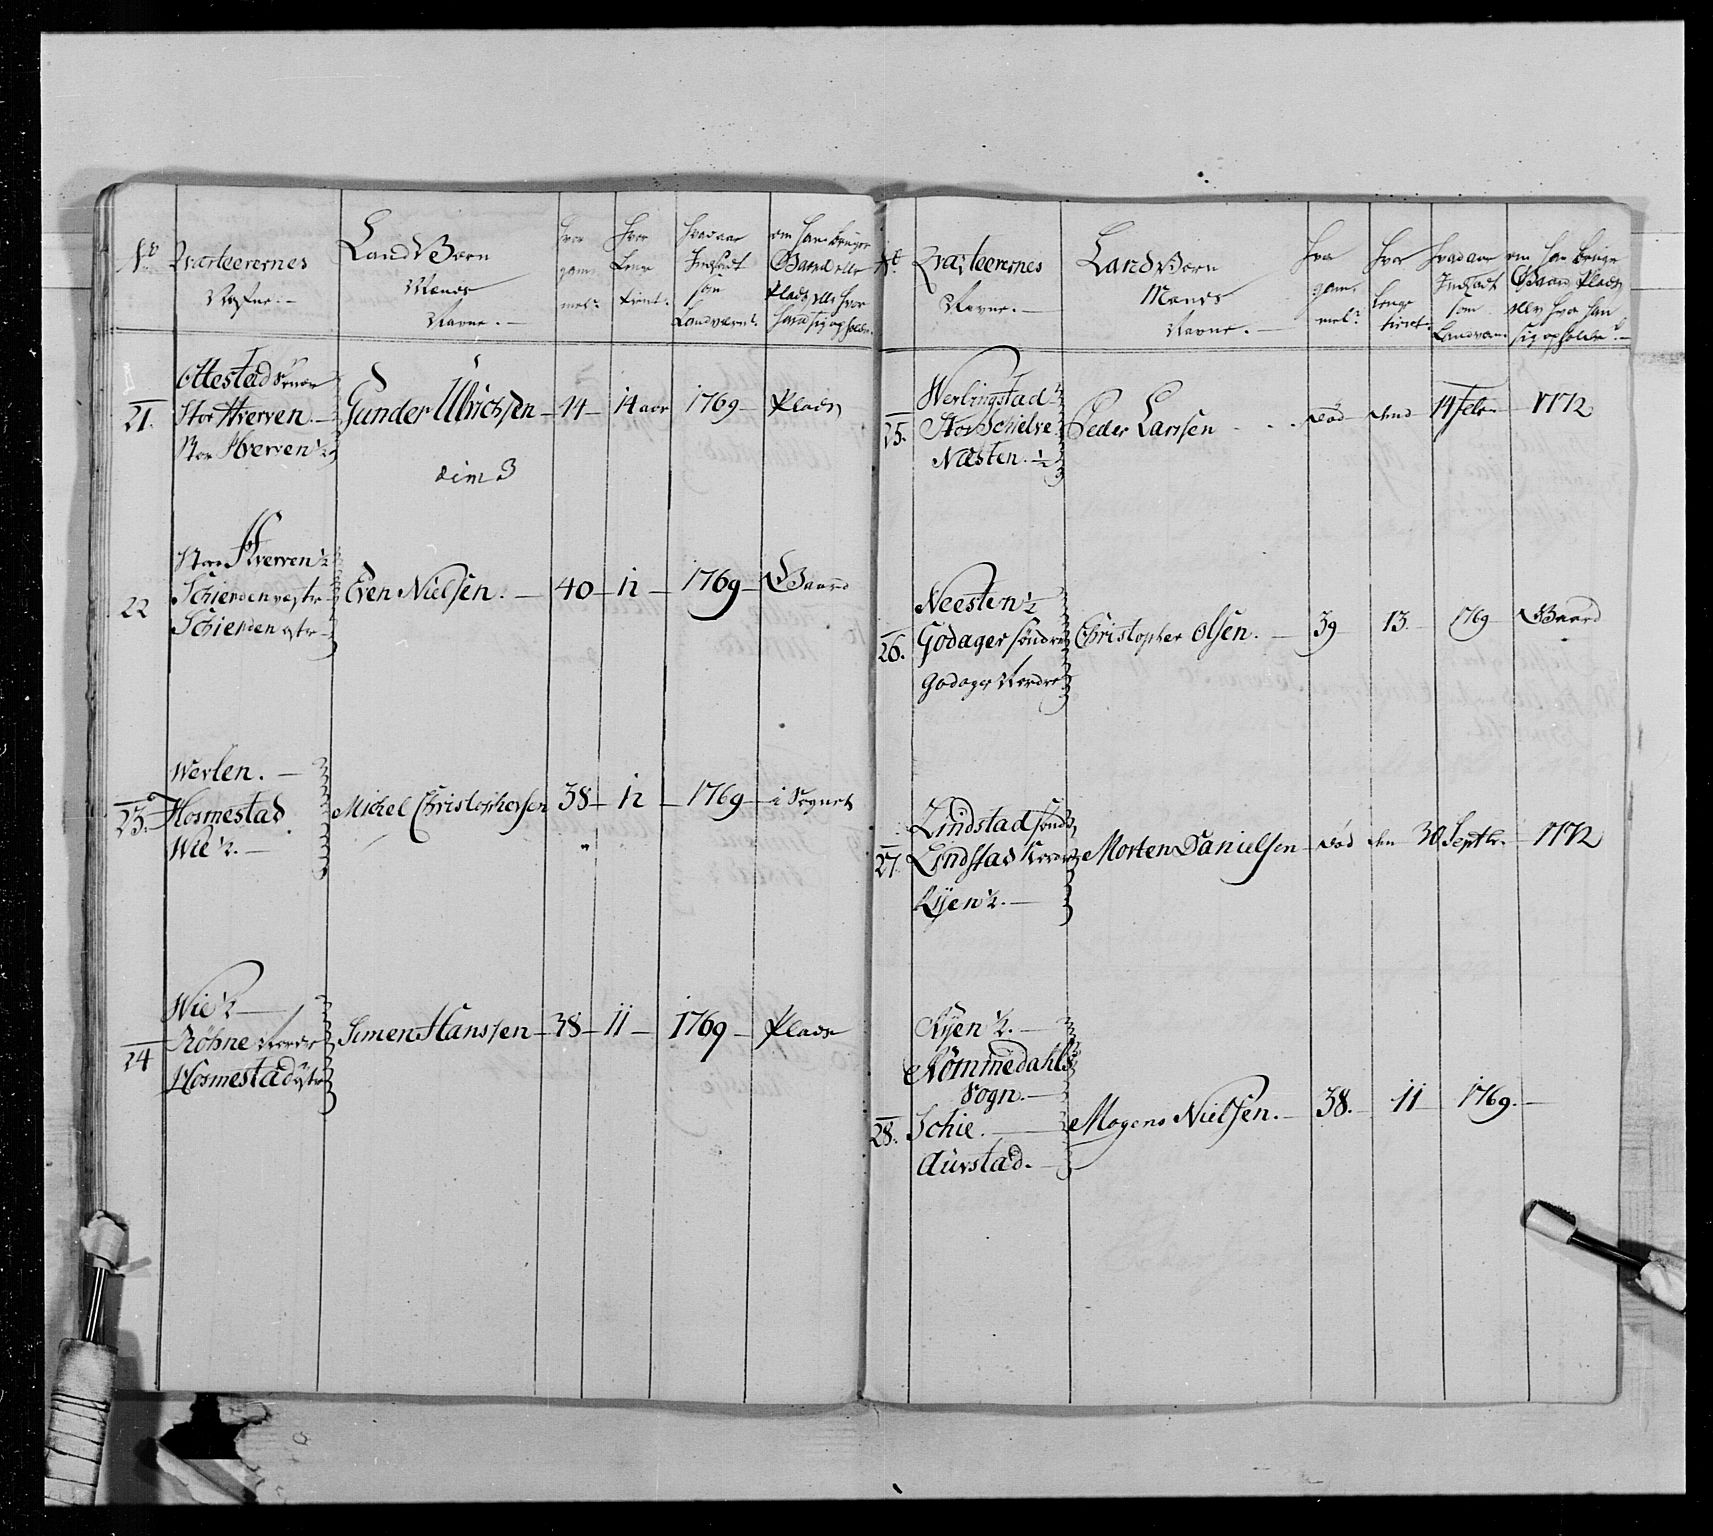 No
Qvarteerernes
Nafne.
LandVærn
Mænds
Navne.
hvor
gam-
mel.
hvor
længe
tient.
hvad aar
Indsadt
som
Landværn.
om han bruger
Gaard eller
Plads, eller hvor
hand sig opholder.
21.
Ottestad
Stor Hverven
Stor Hverven ½
Gunder Ulrichsen
44
14 aar
1769
Plads
dim 3
22
Stor Hverven ½
Schierden vestr
Schierden østr
Even Nielsen.
40
12
1769
Gaard
23.
Werlen.
Hosmestad
Wie ½.
Michel Christophersen
38
12
1769
i Sognet
24
Wie ½
Röhne Nordr
Hosmestad østr
Simen Hanssen
38
11
1769
Plads
No
Qvarteerernes
Navne.
LandVærn
Mænds
Navne.
hvor
gam-
mel.
hvor
længe
tient.
hvad aar
Indsadt
som
Landværn
om han bruger
Gaard Plads
eller hvor han
sig opholder.
25.
Werlingstad ½
Stor Schielve
Næsten. ½
Peder Larssen
död
dend
14 Febr
1772
26.
Neesten ½
Godager söndre
Godager Nordre
Christopher Olsen.
39
13.
1769
Gaard
27.
Lindstad sönd
Lindstad Nordr
Ryen ½.
Morten Danielsen
död
den
30 Septbr.
1772
28.
Ryen ½.
Rommedahls
Sogn.
Schie.
Aurstad.
Mogens Nielsen.
38.
11
1769.